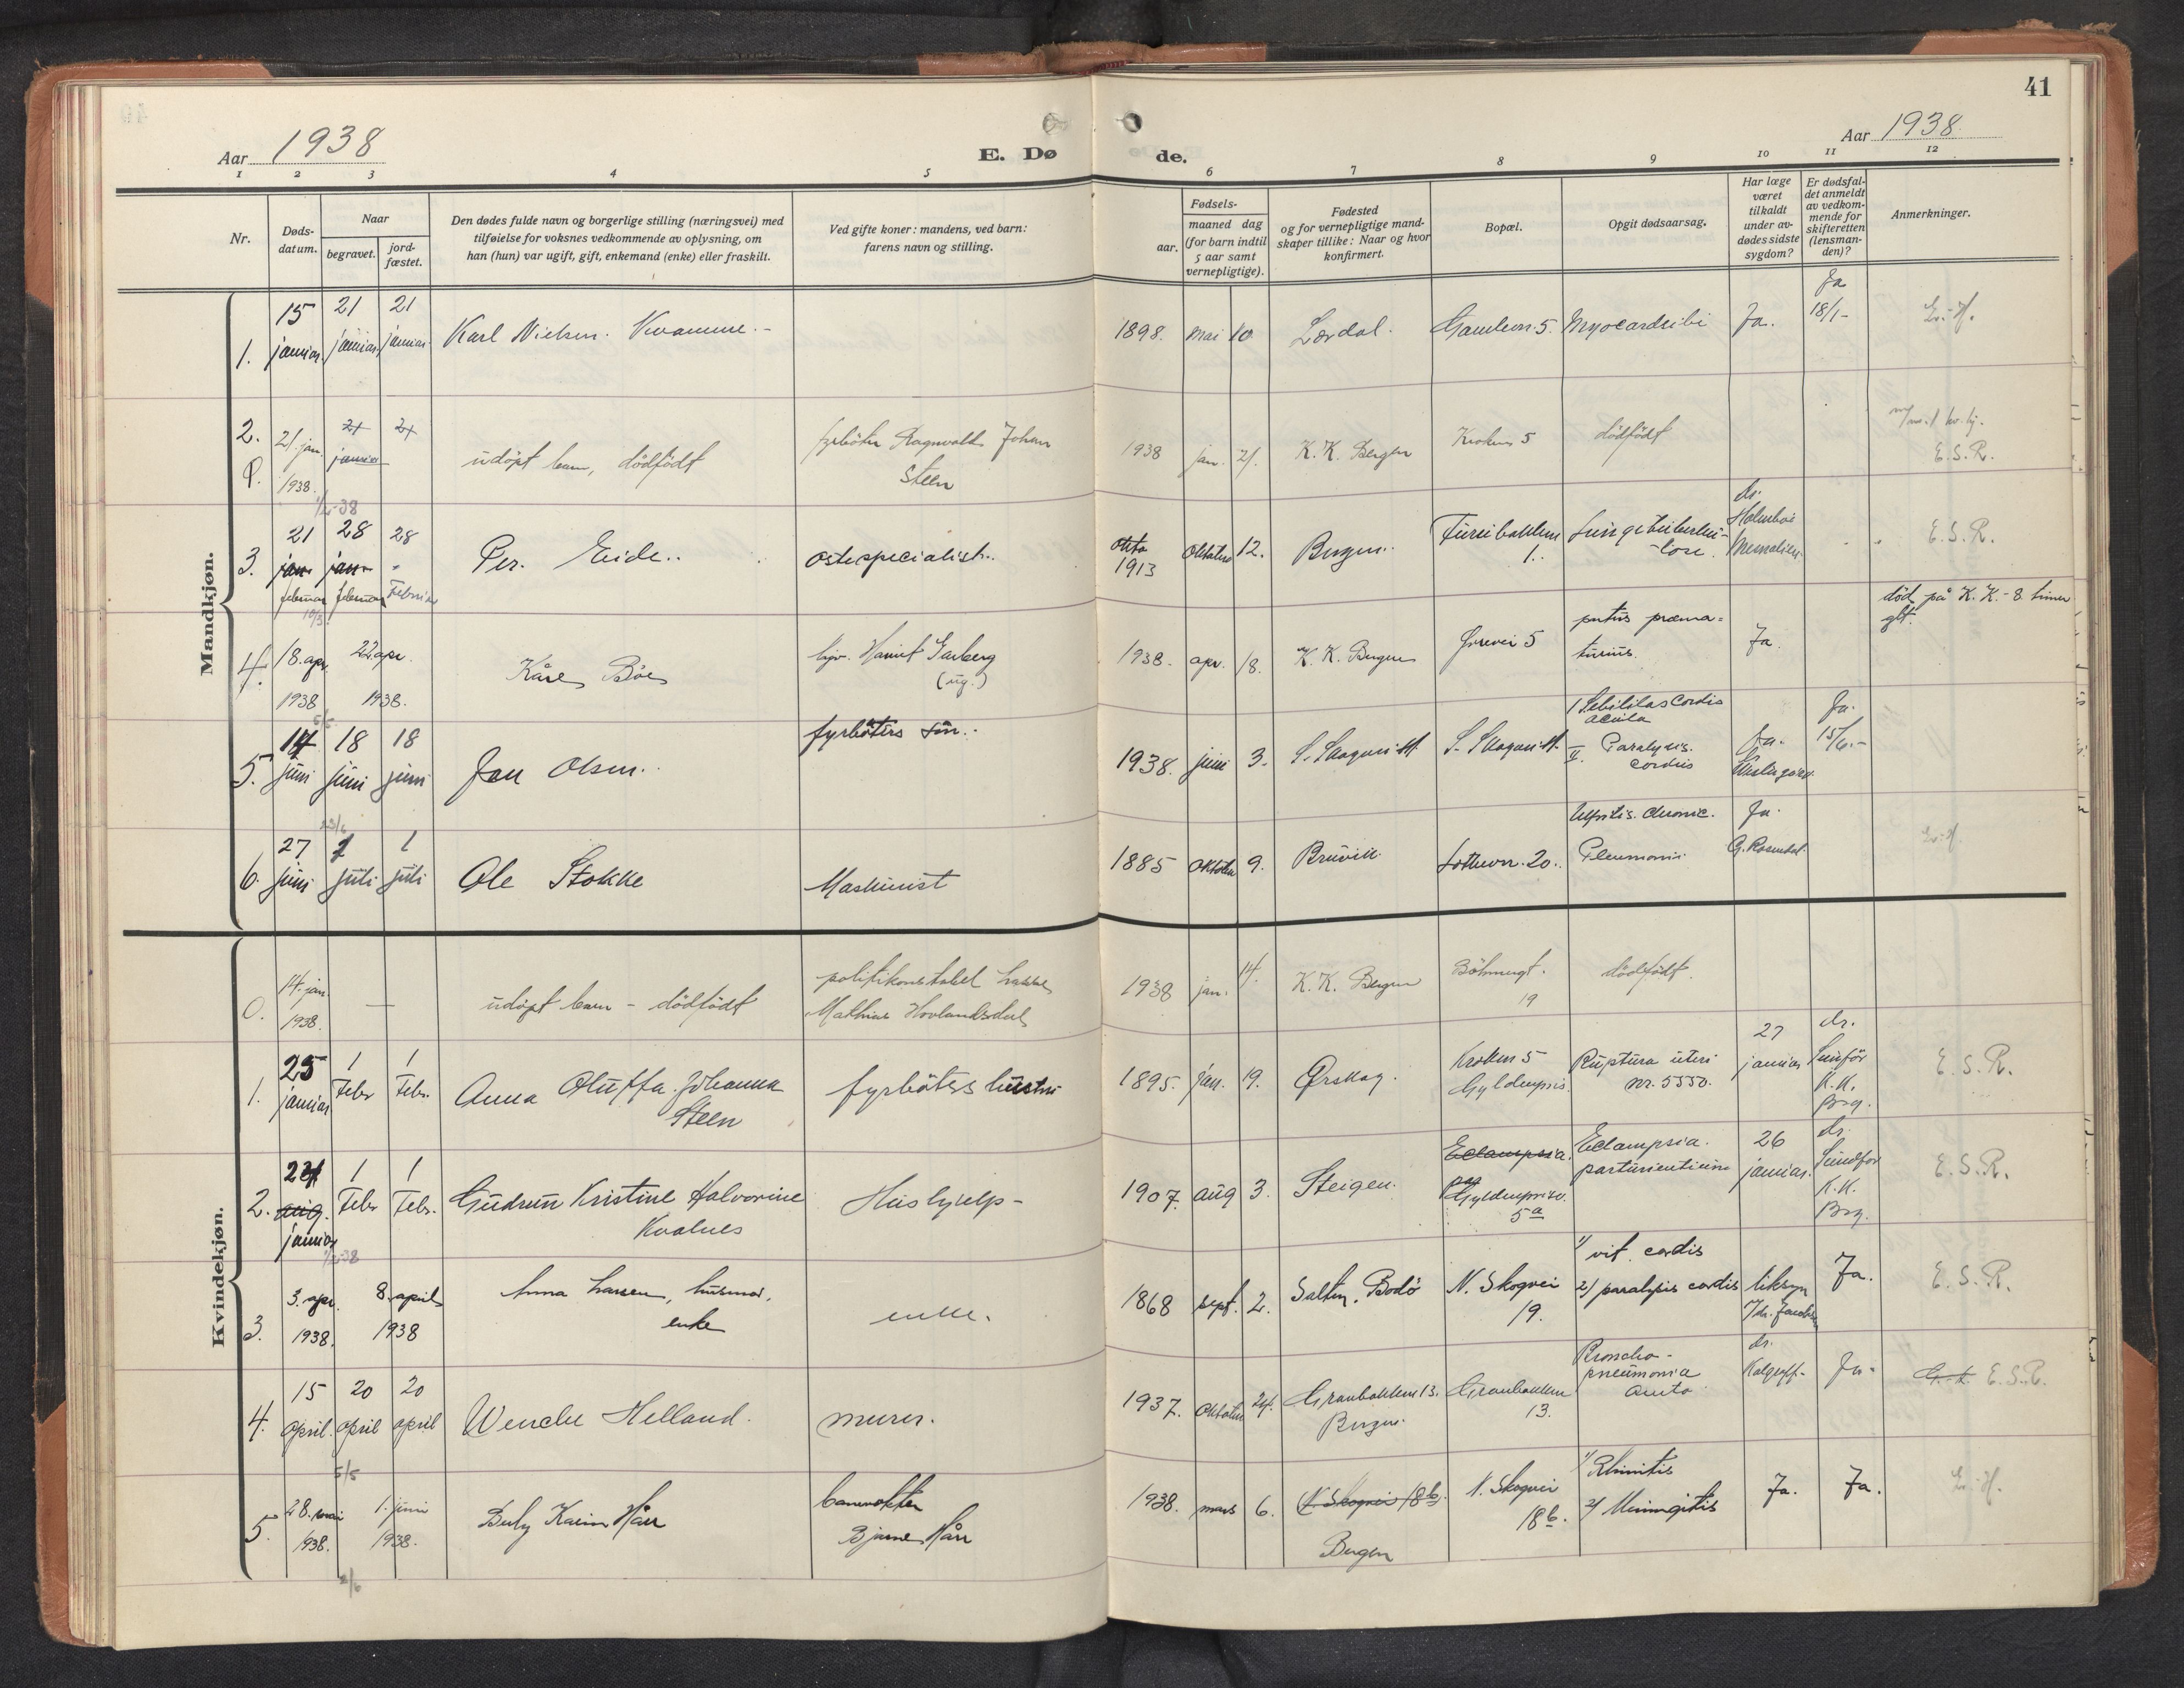 41
Aar 1938
E. Dø
de.
Aar 1938.
1 2 3 4 5 6 7 8 9 10 11 12
Nr.
Døds-
datum.
Naar
begravet.
jord-
fæstet.
Den dødes fulde navn og borgerlige stilling (næringsvei) med
tilføielse for voksnes vedkommende av oplysning, om
han (hun) var ugift, gift, enkemand (enke) eller fraskilt.
Ved gifte koner: mandens, ved barn:
farens navn og stilling.
Fødsels-
aar.
maaned dag
(for barn indtil
5 aar samt
vernepligtige).
Fødested
og for vernepligtige mand-
skaper tillike: Naar og hvor
konfirmert.
Bopæl.
Opgit dødsaarsag.
Har læge
været
tilkaldt
under av-
dødes sidste
sygdom?
Er dødsfal-
det anmeldt
av vedkom-
mende for
skifteretten
(lensman-
den)?
Anmerkninger.
Mandkjøn.
1. 15 januar. 21 januar. 21 januar.
Karl Nielsen. Kvamme.-
1898. mai 10. Lærdal. 5. Ja. Ja 18/1-
2. 21. jan. 1938. 21 januar 21
1/2-38
udøpt barn, dödfödt
fyrböter Ragnvald Johan
Steen
1938 jan. 21. K. K. Bergen Kroken 5 dödfödt
E. S. R.
3. 21 jan februar 28 jan februar 28 Februar
10/3
Per. Eide..
ostespecialist..
1913 Oktober 12. Bergen. 1.
dr.
E. S. R.
4. 18. apr. 1938 22 apr. 1938.
5/5
Kåre Böe
(ug.)
1938. apr. 18. K. K. Bergen 5
partus præma-
turus.
Ja.
död på K. K. - 8 timer
glt.
5. 14 juni 18 juni 18 juni
23/6
Jan Olsen..
fyrböters sön..
1938. juni 3. S. Skogveien S. Skogveien
I Debilitas Cordis
acuta
II. Paralysis.
cordis
Ja.
Ja. 15/6.-
6. 27 juni 1 juli 1 juli
Ole Stokke
Maskinist
1885 Oktober 9. Bruvik. 20..
Nefritis. chronic.
Pleumoni
Ja.
G. Rosendal.
Kvindekjøn.
0. 14. jan. 1938. —
udøpt barn - dödfödt
politikonstabel Lasse
Mathias Hovlandsdal
1938 jan. 14. K. K. Bergen Böhmergt. 19 dödfödt.
1. 25 januar 1 Febr 1 Febr.
Anna Oluffa Johanna
Steen
fyrböters hustru
1895. jan. 19. Ørskog. Kroken 5
Ruptura uteri
nr. 5550.
27 januar
dr.
K. K.
Brg.
E. S. R.
2. 24 aug. januar 1 Febr 1 Febr.
1/2-38
Gudrun Kristine Halvorine
Kvalnes
Hushjelp-
1907. aug 3. Steigen. Eclampsia. 5a
Eclampsia.
parturientium
26 januar.
dr.
Sundfor
K. K.
Brg.
E. S. R.
3. 3. apr. 1938. 8. april 1938
Anna Larsen, husmor,
enke
enke.
1868 sept. 2. Salten, Bodö N. Skogvei 19.
1/ vit. cordis
2/ paralysis cordis
liksyn
Ja.
E. S. R.
4. 15 april. 20 april 20 april
5/5
Wenche Helland.
murer.
1937. Oktober 24. Granbakken 13. Bergen. Granbakken 13.
Broncho-
pneumonia
acuta
dr.
Ja.
E. S. R.
5. 28. mai 1938. 1. juni 1938.
2/6
Karin Hårr
banevokter
Bjarne Hårr
1938. mars 6. (N. Skogvei 18b). Bergen N. Skogvei 18b.
1/ Rhinitis
2/ Meningitis
Ja. Ja.